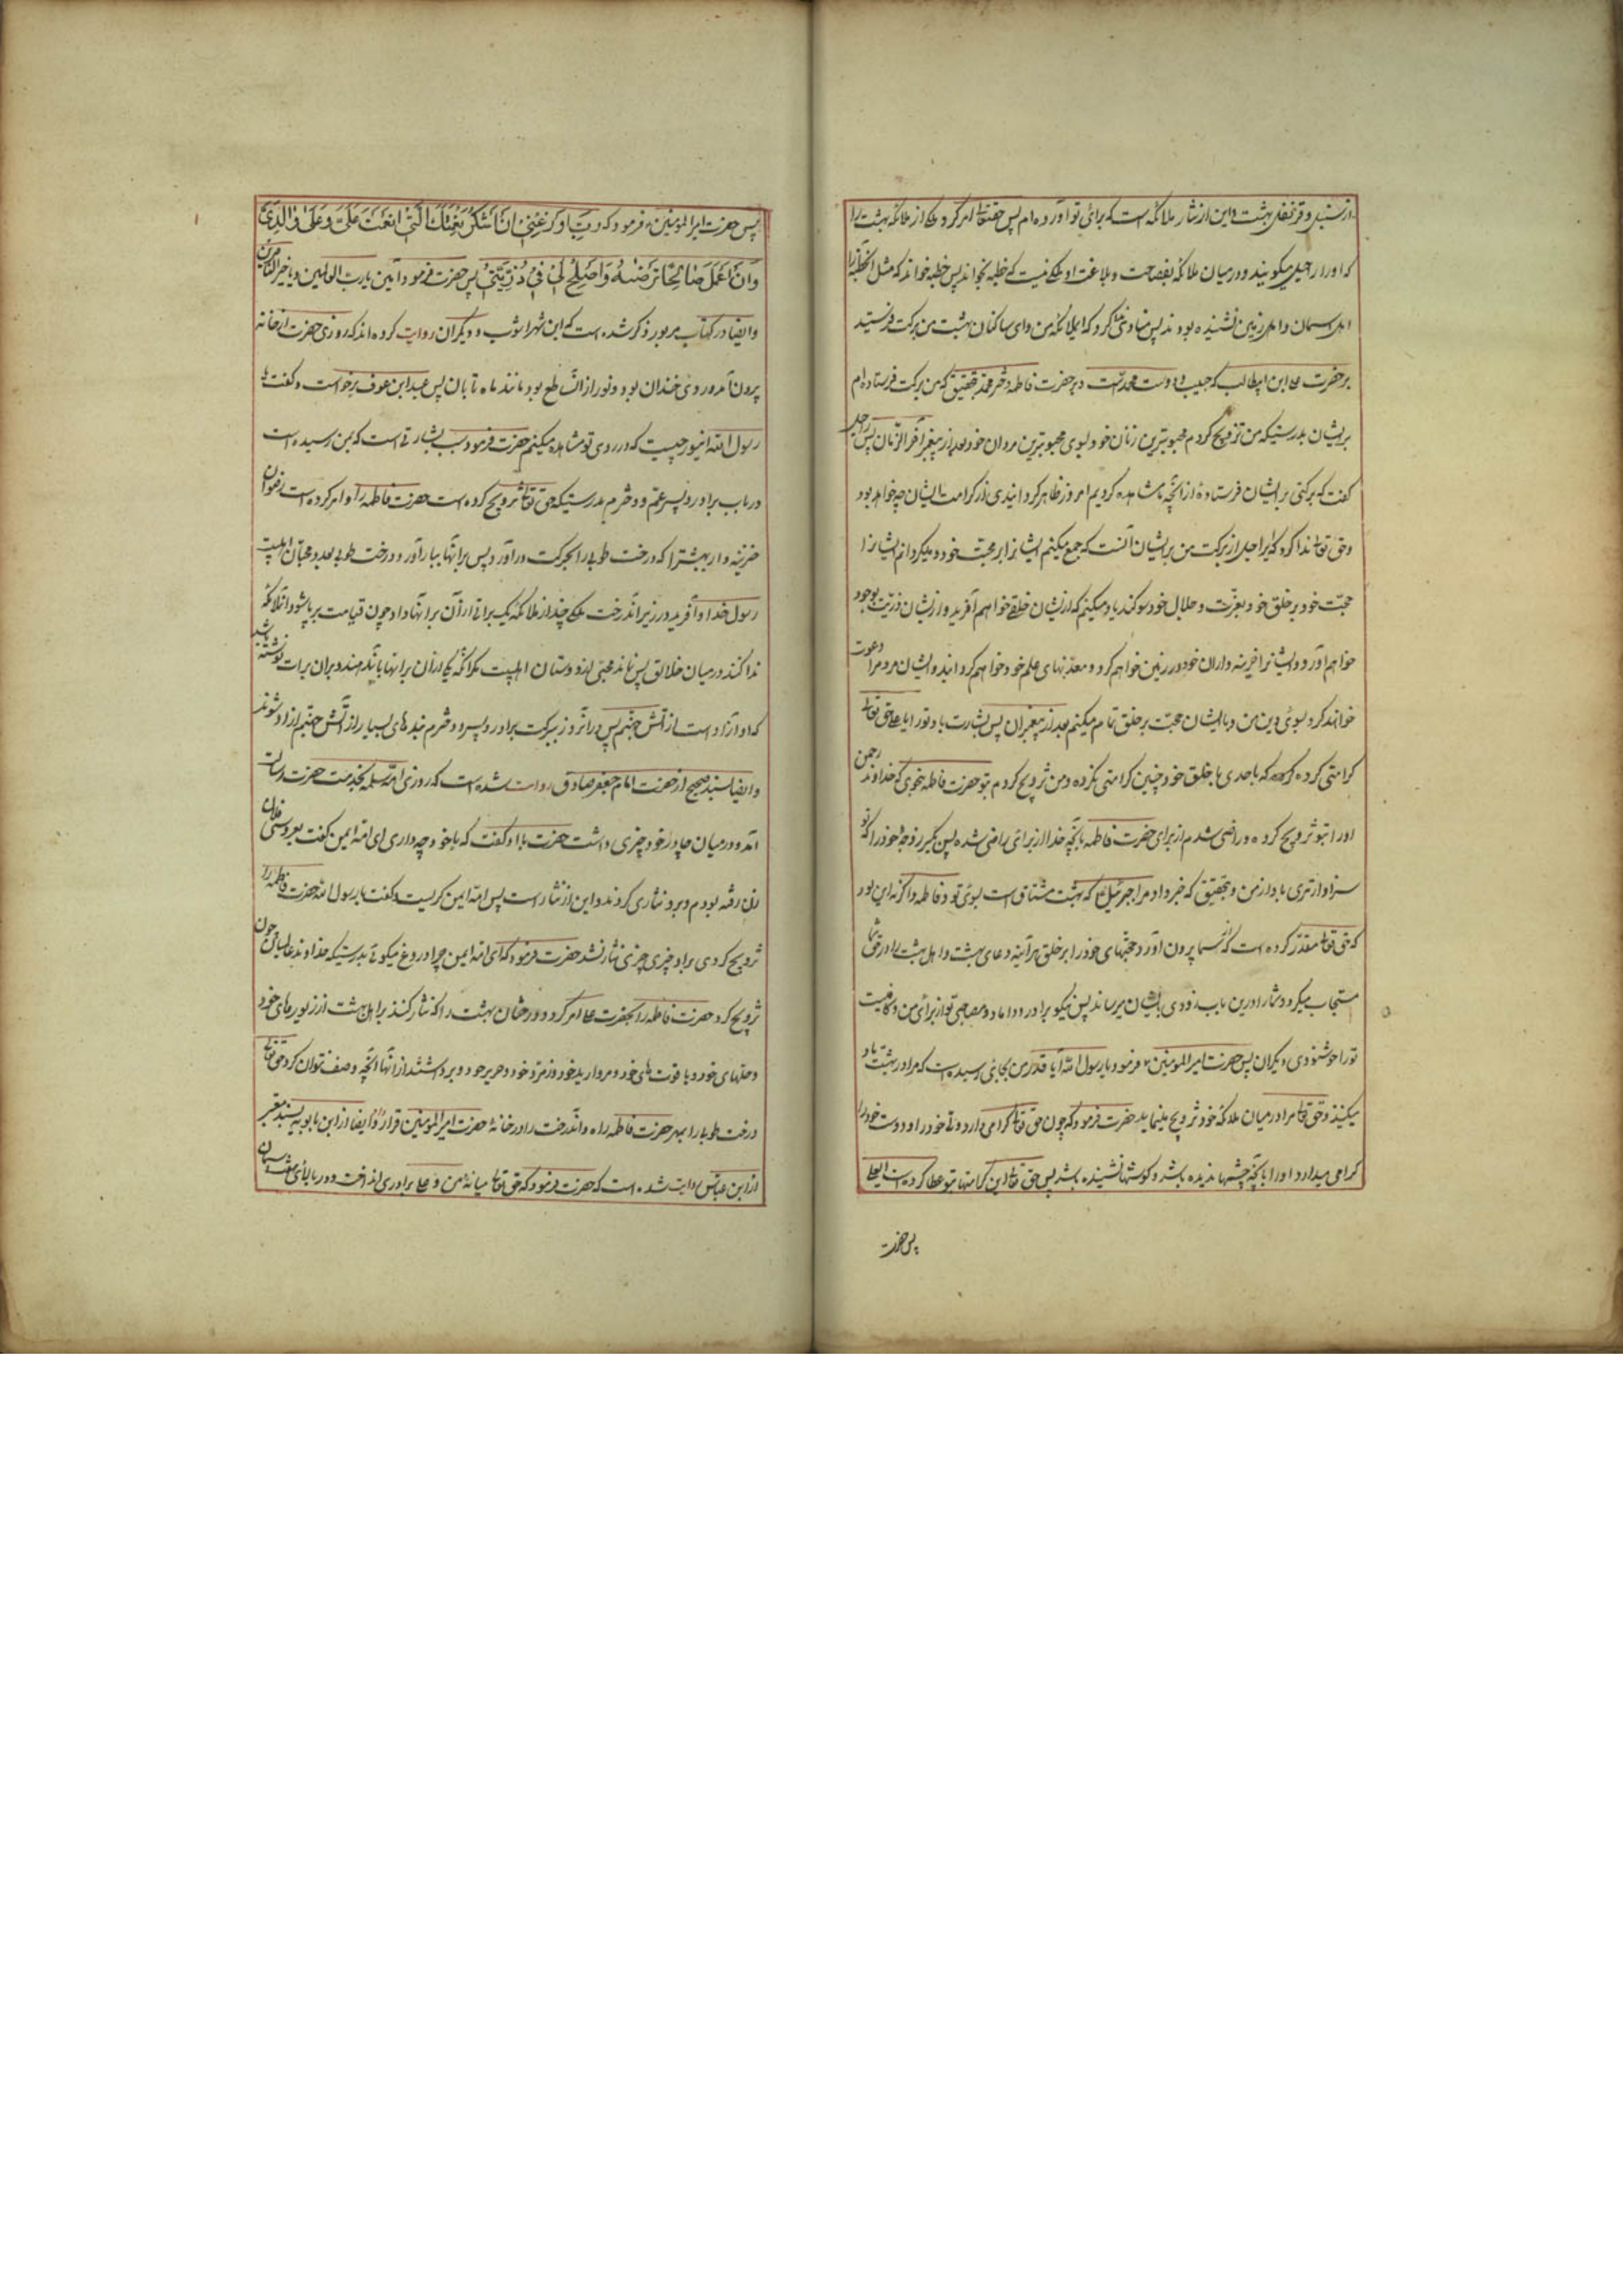 از سنبل و قرنفل بهشت و این از نثار ملائکه است که برای تو آورده ام پس حقتعالی امر کرد ملکی از ملائکه بهشت را
که او را راحیل میگویند و در میان ملائکه بفصاحت و بلاغت او ملکی نیست که خطبه بخواند پس خطبه خواند که مثل آنخطبه را
اهل آسمان و اهل زمین نشنیده بودند پس منادی ندا کرد که ایملائکه من و ای ساکنان بهشت من برکت فرستید
بر حضرت علی ابن ابیطالب که حبیب و دوست محمد است و بر حضرت فاطمه دختر محمد بتحقیق که من برکت فرستاده ام
بریشان بدرستیکه من تزویج کردم محبوبترین زنان خود بسوی محبوبترین مردان خود بعد از پیغمبر آخر الزمان پس راحیل
گفت که برکتی بر ایشان فرستادهٔ از آنچه ما مشاهده کردیم امروز ظاهر گردانیدی از کرامت ایشان چه خواهد بود
و حق تعالی ندا کرد که ای راحیل از برکت من بریشان آنست که جمع میکنم ایشانرا بر محبت خود و میگردانم ایشانرا
حجت خود بر خلق خود بعزت و جلال خود سوگند یاد میکنم که ازیشان خلقی خواهم آفرید و ازیشان ذریت بوجود
خواهم آورد و ایشانرا خزینه داران خود در زمین خواهم کرد و معدنهای علم خود خواهم گردانید و ایشان مردم را دعوت
خواهند کرد بسوی دین من و با ایشان حجت بر خلق تمام میکنم بعد از پیغمبران پس بشارت باد تو را یا علی حق تعالی
کرامتی کرده که که باحدی با خلق خود چنین کرامتی نکرده و من تزویج کردم بتو حضرت فاطمه بنحوی که خداوند رحمن
او را بتو تزویج کرده و راضی شدم از برای حضرت فاطمه بآنچه خدا از برای راضی شده پس بگیر زوجهٔ خود را که تو
سزاوارتری باو از من و بتحقیق که خبر داد مرا جبرئیل ع که بهشت مشتاق است بسوی تو و فاطمه و اگر نه این بود
که حق تعالی مقدر کرده است که از شما بیرون آورد حجتهای خود را بر خلق هر آینه دعای بهشت و اهل بهشت را در حق شما
مستجاب میکرد و شما را درین باب بزودی بایشان میرساند پس نیکو برادر و داماد و مصاحبی تو از برای من و کافیست
تو را خوشنودی دیگران پس حضرت امیر المومنین ع فرمود یا رسول الله آیا قدر من بجائی رسیده است که مرا در بهشت یاد
میکنند و حق تعالی مرا در میان ملائکه خود تزویج مینماید حضرت فرمود که چون حق تعالی گرامی دارد دوستی خود را و دوست خود را
گرامی میدارد او را بآنچه چشمها ندیده باشد و گوشها نشنیده باشد پس حق تعالی این کرامتها بتو عطا کرده است یا علی
پس حضرت
پس حضرت امیر المومنین ع فرمود که رَبِّ أَوْزِعْنِي أَنْ أَشْكُرَ نِعْمَتَكَ الَّتِي أَنْعَمْتَ عَلَيَّ وَعَلَى وَالِدَيَّ
وَأَنْ أَعْمَلَ صَالِحًا تَرْضَاهُ وَأَصْلِحْ لِي فِي ذُرِّيَّتِي پس حضرت فرمود آمین یا رب العالمین و یا خیر الناصرین
و ایضا در کتاب مزبور ذکر شده است که ابن شهرآشوب و دیگران روایت کرده اند که روزی حضرت از خانه
بیرون آمد و روی خندان بود و نور از آن ساطع بود مانند ماه تابان پس عبد ابن عوف برخواست و گفت یا
رسول الله این نور چیست که در روی تو مشاهده میکنم حضرت فرمود سبب بشارتی است که بمن رسیده است
در باب برادر و پسر عم و دخترم بدرستیکه حق تعالی تزویج کرده است حضرت فاطمه را و امر کرده است رضوان
خزینه دار بهشترا که درخت طوبی را بحرکت در آورد پس براتها ببار آورد درخت طوبی بعدد محبان اهلبیت
رسول خدا و آفرید در زیر آندرخت ملکی چند از ملائکه یک براتی از آن براتها داد چون قیامت برپا شود آنملائکه
ندا کنند در میان خلائق پس نماند محبی از دوستان اهلبیت مگر آنکه یکی از آن براتها باو بدهند و بران برات نوشته شده باشد
که او آزاد است از آتش جهنم پس در آنروز ببرکت برادر و پسر و دخترم بندهای بسیار از آتش جهنم آزاد شوند
و ایضا بسند صحیح از حضرت امام جعفر صادق روایت شده است که روزی ام سلمه بخدمت حضرت رسالت
آمد و در میان چادر خود چیزی داشت حضرت باو گفت که با خود چه داری ای ام ایمن گفت بعروسی فلان
زن رفته بودم و برو نثاری کردند و این از نثار است پس ام ایمن گریست و گفت یا رسول الله حضرت فاطمه را
تزویج کردی برا و چیزی نثار نشد حضرت فرمود که ای ام ایمن چرا دروغ میگوئی بدرستیکه خداوند عالمیان چون
تزویج کرد حضرت فاطمه را بحضرت علی امر کرد درختان بهشت را که نثار کنند بر اهل بهشت از زیورهای خود
و حلهای خود و یاقوت های خود و مروارید خود و زمرد خود و حریر خود و برداشتند از آنها آنچه وصف نتوان کرد حق تعالی
درخت طوبا را بمهر حضرت فاطمه داد و آندرخت را در خانهٔ حضرت امیر المومنین قرار داد ایضا از ابن بابویه بسند معتبر
از ابن عباس روایت شده است که حضرت فرمود که حق تعالی میانهٔ من و علی برادری انداخت و در بالای هفت آسمان